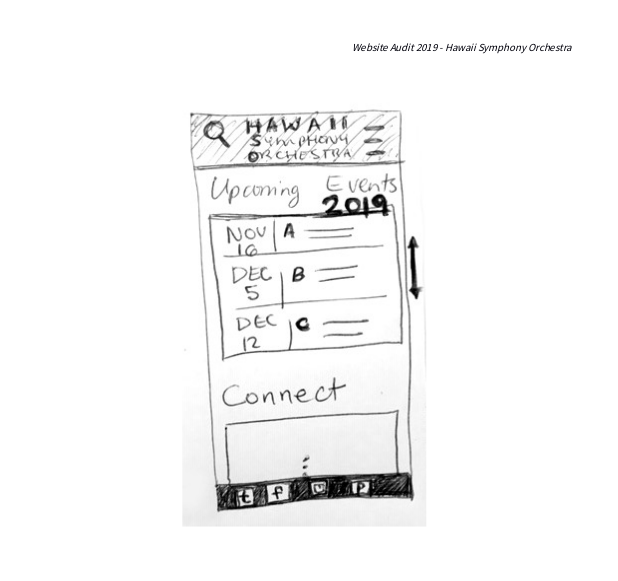 Website Audit 2019 - Hawaii Symphony Orchestra
HAWAII
SYMPHONY
ORCHESTRA
Upcoming Events
2019
NOV 16 A
DEC 5 B
DEC 12 C
Connect
t f P